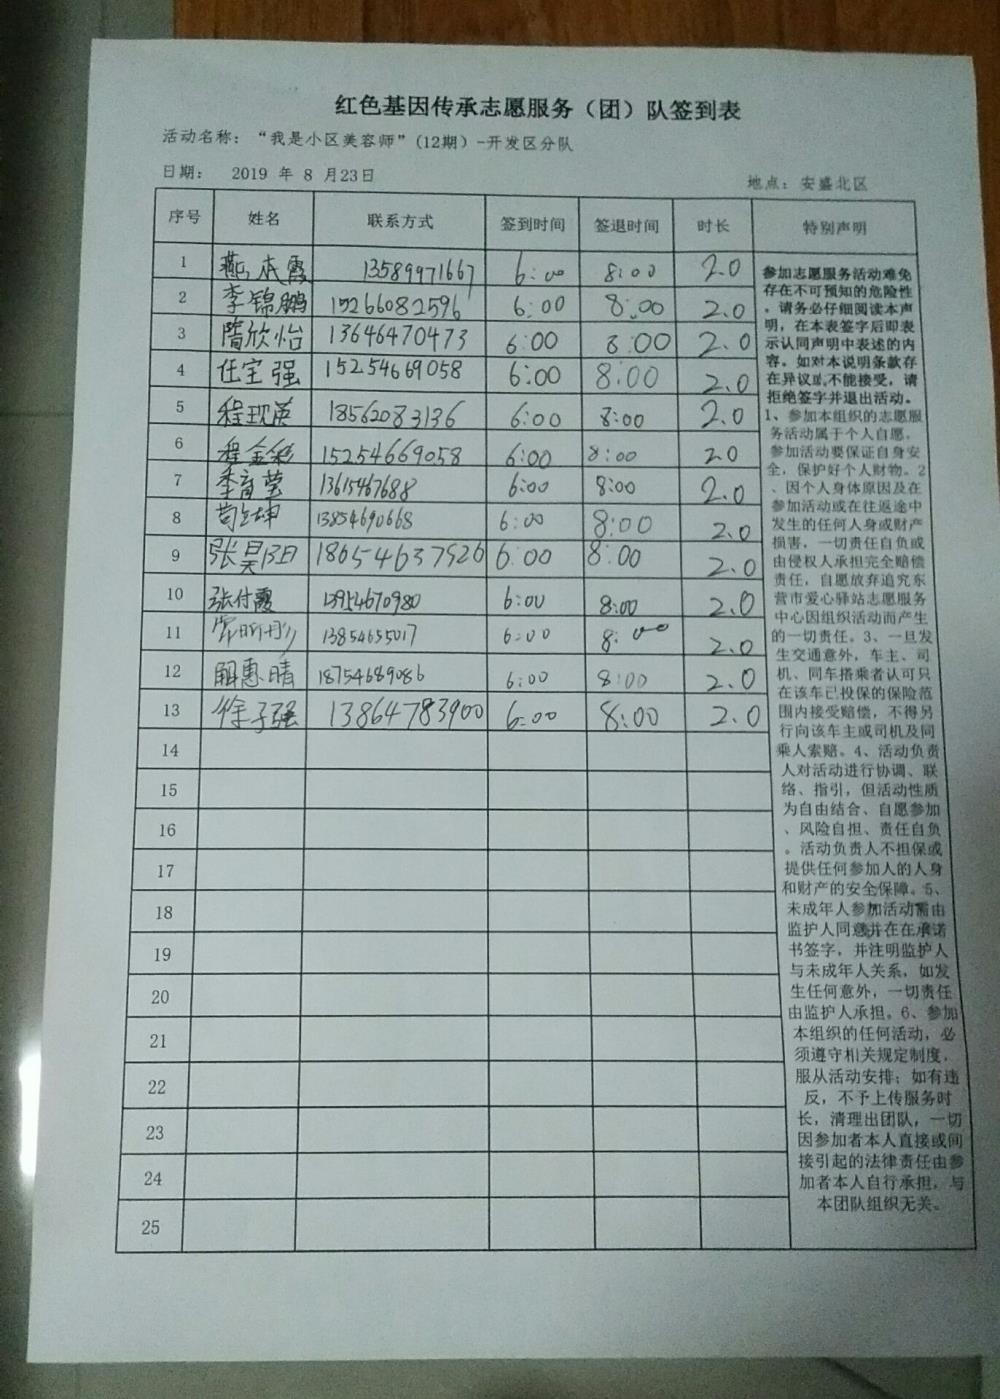 红色基因传承志愿服务（团）队签到表
活动名称：“我是小区美容师”(12期）-开发区分队
日期： 2019 年 8 月23日
地点：安盛北区
序号 姓名 联系方式 签到时间 签退时间 时长 特别声明
1 燕 霞 13589971667 6:00 8:00 2.0
2 李锦鹏 15266082596 6:00 8:00 2.0
3 隋欣怡 13646470473 6:00 8:00 2.0
4 任宝强 15254669058 6:00 8:00 2.0
5 程现英 18562083136 6:00 8:00 2.0
6 程金彩 15254669058 6:00 8:00 2.0
7 李育莹 13615467688 6:00 8:00 2.0
8 坤 13854690668 6:00 8:00 2.0
9 张昊阳 18654637926 6:00 8:00 2.0
10 张付霞 13954670980 6:00 8:00 2.0
11 13854655017 6:00 8:00 2.0
12 解惠晴 18754689086 6:00 8:00 2.0
13 徐子强 13864783900 6:00 8:00 2.0
14
15
16
17
18
19
20
21
22
23
24
25
参加志愿服务活动难免
存在不可预知的危险性
，请务必仔细阅读本声
明，在本表签字后即表
示认同声明中表述的内
容。如对本说明条款存
在异议或不能接受，请
拒绝签字并退出活动。
1、参加本组织的志愿服
务活动属于个人自愿。
参加活动要保证自身安
全，保护好个人财物。2
、因个人身体原因及在
参加活动或在往返途中
发生的任何人身或财产
损害，一切责任自负或
由侵权人承担完全赔偿
责任，自愿放弃追究东
营市爱心驿站志愿服务
中心因组织活动而产生
的一切责任。3、一旦发
生交通意外，车主、司
机、同车搭乘者认可只
在该车已投保的保险范
围内接受赔偿，不得另
行向该车主或司机及同
乘人索赔。4、活动负责
人对活动进行协调、联
络、指引，但活动性质
为自由结合、自愿参加
、风险自担、责任自负
。活动负责人不担保或
提供任何参加人的人身
和财产的安全保障。5、
未成年人参加活动需由
监护人同意并在在承诺
书签字，并注明监护人
与未成年人关系，如发
生任何意外，一切责任
由监护人承担。6、参加
本组织的任何活动，必
须遵守相关规定制度，
服从活动安排；如有违
反，不予上传服务时
长，清理出团队，一切
因参加者本人直接或间
接引起的法律责任由参
加者本人自行承担，与
本团队组织无关。